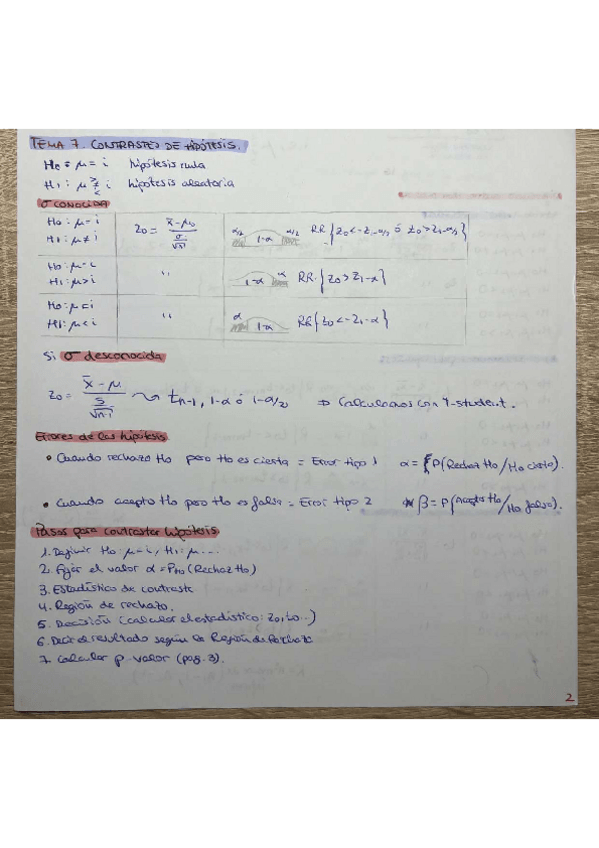 TEMA 7. CONTRASTES DE HIPÓTESIS.
H0 = μ = i hipótesis nula
H1 : μ ≷≠ i hipótesis aleatoria
σ CONOCIDA
H0 : μ = i
H1 : μ ≠ i
Z0 = (x̄ - μ0) / (σ/√n)
α/2 1-α α/2 RR {Z0 < -Z1-α/2 ó Z0 > Z1-α/2}
H0 : μ = i
H1 : μ > i
"
1-α α RR. {Z0 > Z1-α}
H0 : μ = i
H1 : μ < i
"
α 1-α RR {Z0 < -Z1-α}
Si σ desconocida
Z0 = (x̄ - μ) / (S/√n-1) ⤳ tn-1, 1-α ó 1-α/2 ⇒ Calculamos con T-student.
Errores de las hipótesis
• Cuando rechazo H0 pero H0 es cierta = Error tipo 1 α = P(Rechaz H0/H0 cierta).
• Cuando acepto H0 pero H0 es falsa = Error tipo 2 β = P(Acepto H0/H0 falsa).
Pasos para contrastar hipótesis
1. Definir H0 : μ = i, H1 : μ ...
2. Fijar el valor α = PH0 (Rechaz H0)
3. Estadístico de contraste
4. Región de rechazo.
5. Decisión (calcular el estadístico: Z0, t0...)
6. Decir el resultado según la Región de Rechazo
7. Calcular p-valor (pag. 3).
2